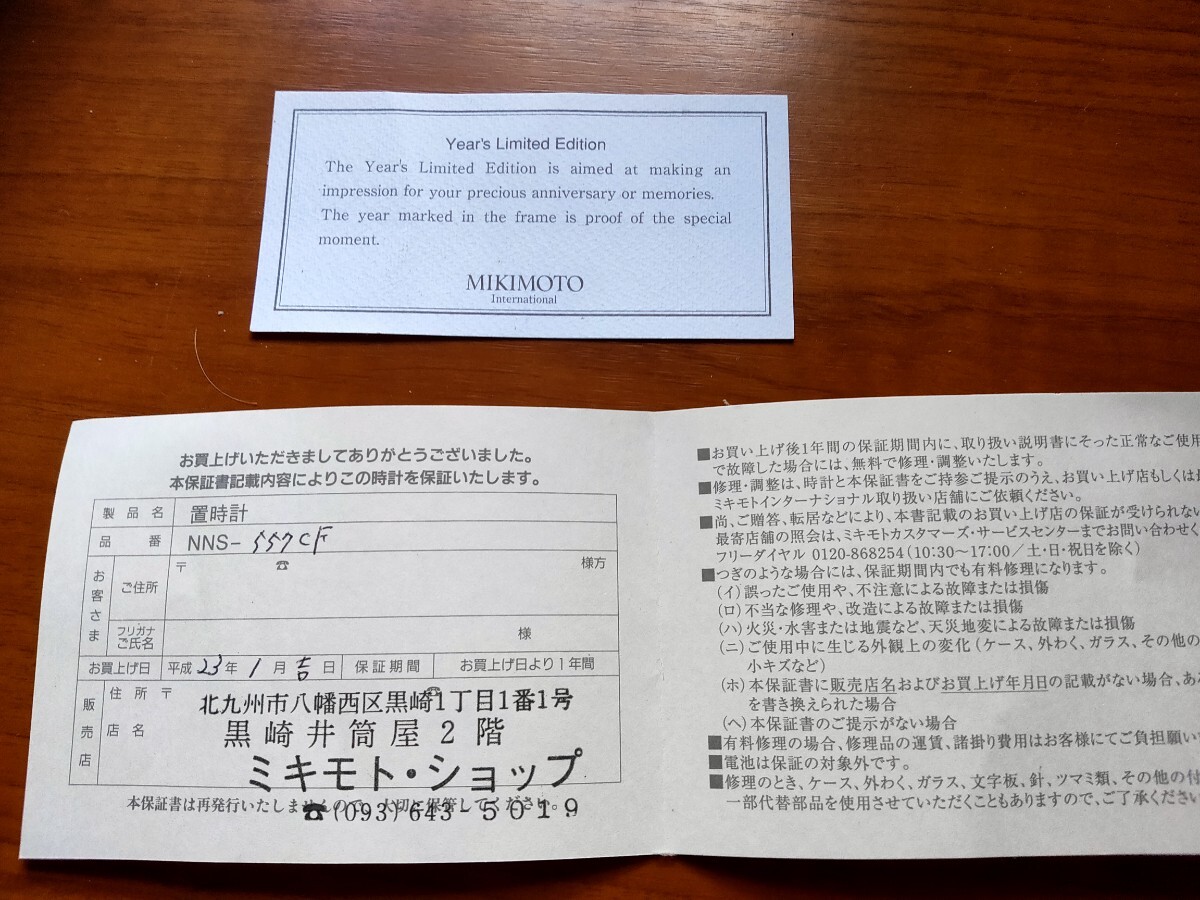 Year's Limited Edition
The Year's Limited Edition is aimed at making an
impression for your precious anniversary or memories.
The year marked in the frame is proof of the special
moment.
MIKIMOTO
International
お買上げいただきましてありがとうございました。
本保証書記載内容によりこの時計を保証いたします。
製品名 置時計
品番 NNS-557CF
お客さま ご住所 〒 ☎ 様方
フリガナ
ご氏名 様
お買上げ日 平成23年1月吉日 保証期間 お買上げ日より1年間
販売店 住所 〒 北九州市八幡西区黒崎1丁目1番1号
店名 黒崎井筒屋2階
ミキモト・ショップ
☎(093)643-5019
本保証書は再発行いたしませんので、大切に保管してください。
■お買い上げ後1年間の保証期間内に、取り扱い説明書にそった正常なご使用
で故障した場合には、無料で修理・調整いたします。
■修理・調整は、時計と本保証書をご持参ご提示のうえ、お買い上げ店もしくは最
ミキモトインターナショナル取り扱い店舗にご依頼ください。
■尚、ご贈答、転居などにより、本書記載のお買い上げ店の保証が受けられない
最寄店舗の照会は、ミキモトカスタマーズ・サービスセンターまでお問い合わせく
フリーダイヤル 0120-868254(10:30〜17:00/土・日・祝日を除く)
■つぎのような場合には、保証期間内でも有料修理になります。
(イ)誤ったご使用や、不注意による故障または損傷
(ロ)不当な修理や、改造による故障または損傷
(ハ)火災・水害または地震など、天災地変による故障または損傷
(ニ)ご使用中に生じる外観上の変化(ケース、外わく、ガラス、その他の
小キズなど)
(ホ)本保証書に販売店名およびお買上げ年月日の記載がない場合、ある
を書き換えられた場合
(ヘ)本保証書のご提示がない場合
■有料修理の場合、修理品の運賃、諸掛り費用はお客様にてご負担願い
■電池は保証の対象外です。
■修理のとき、ケース、外わく、ガラス、文字板、針、ツマミ類、その他の付
一部代替部品を使用させていただくこともありますので、ご了承ください